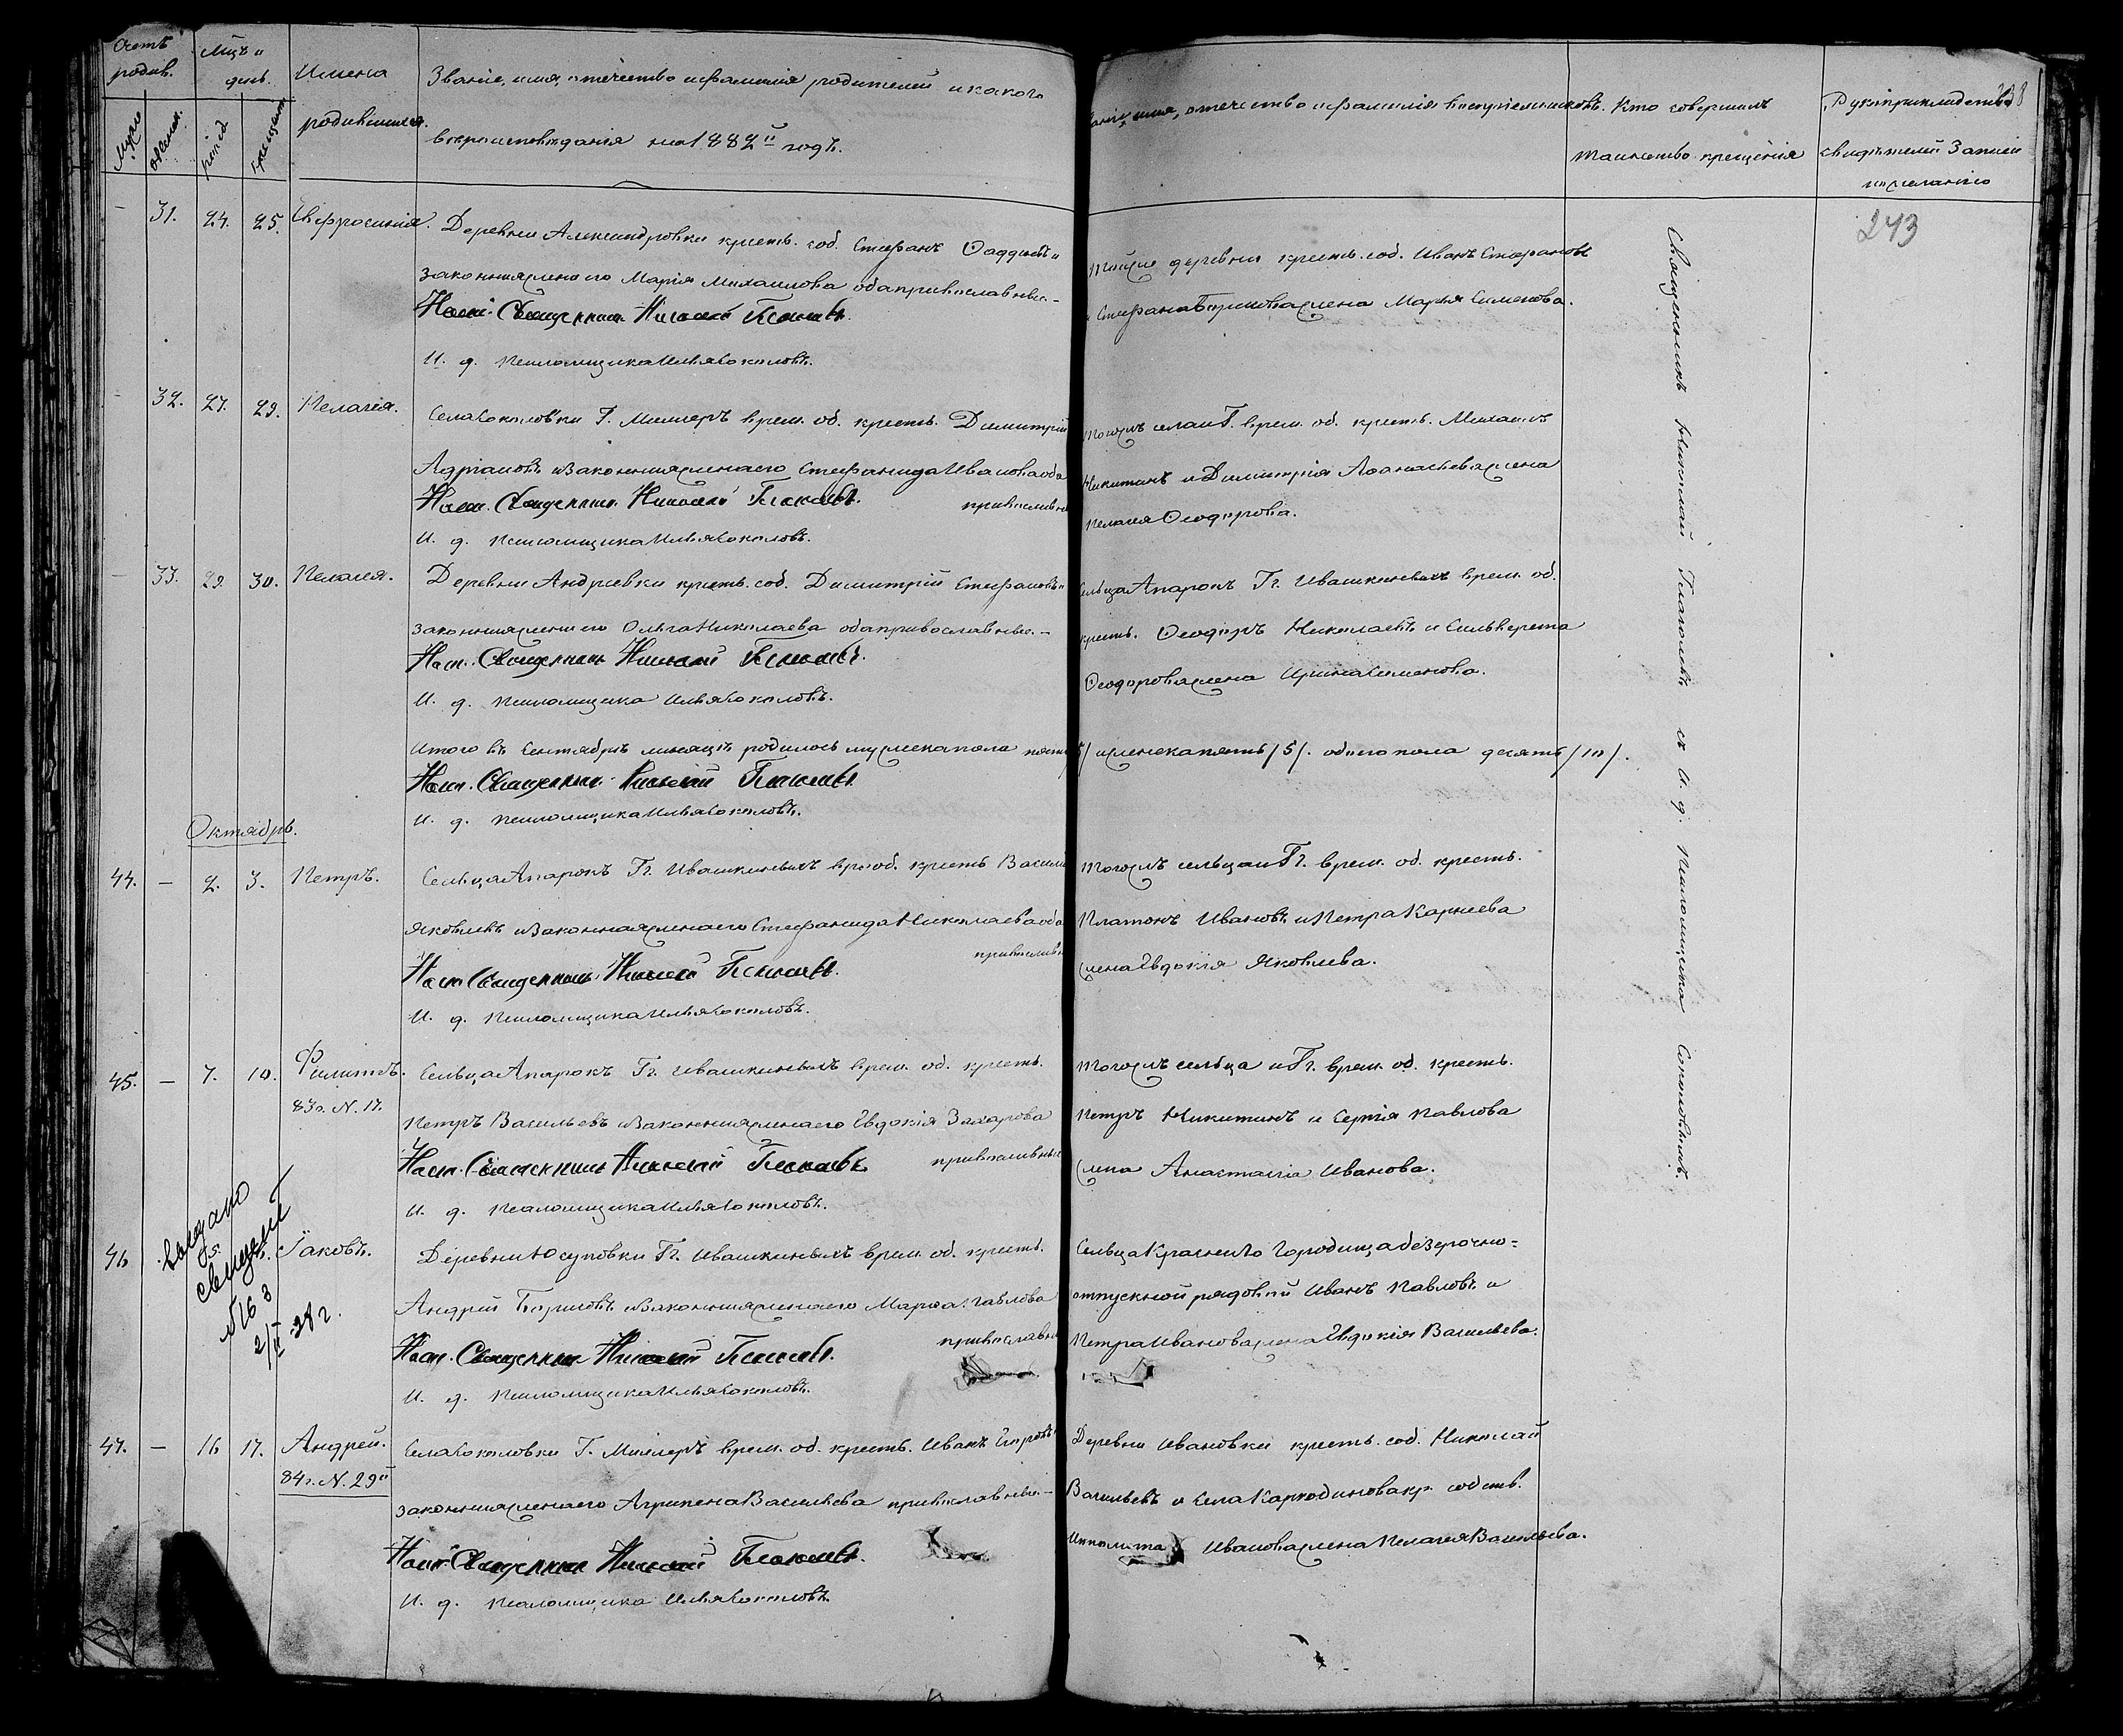 Счетъ родив. Мцъ и день. Имена родившихся. Званіе, имя, отчество и фамилія родителей и какого
вѣроисповѣданія на 1882й годъ.
имя, отчество и фамилія воспріемниковъ. Кто совершалъ таинство крещенія
Рукоприкладство свидѣтелей записи по желанію
243
31. 24. 25. Евфросинія. Деревни Александровки кресть. соб. Стефанъ Фаддѣевъ и
законная жена его Марія Михаилова оба православные.
Наст. Священник Николай Глаголевъ.
И. д. псаломщика Илья Соколовъ.
Тойже деревни кресть. соб. Иванъ Стефановъ
и Стефана Борисова жена Марья Сименова.
32. 27. 29. Пелагія. Села Соколовки Г. Миллеръ врем. об. кресть. Димитрій
Адріановъ и законная жена его Стефанида Иванова оба
православные
Наст. Священник Николай Глаголевъ.
И. д. псаломщика Илья Соколовъ.
Тогожъ села и Г. врем. об. кресть. Михаилъ
Никитинъ и Димитрія Аѳанасьева жена
Пелагія Ѳеодорова.
33. 29. 30. Пелагія. Деревни Андреевки кресть. соб. Димитрій Стефановъ и
законная жена его Ольга Николаева оба православные.
Наст. Священник Николай Глаголевъ.
И. д. псаломщика Илья Соколовъ.
Сельца Апарокъ Гг. Ивашкиныхъ врем. об.
кресть. Ѳеодоръ Николаевъ и Сильверста
Ѳеодорова жена Ирина Сименова.
Итого въ Сентябрѣ мѣсяцѣ родилось мужеска пола пять /5/ и женска пять /5/. обоего пола десять /10/.
Наст. Священник Николай Глаголевъ.
И. д. псаломщика Илья Соколовъ.
Октябрь.
44. – 2. 3. Петръ. Сельца Апарокъ Гг. Ивашкиныхъ вр. об. кресть Василій
Яковлевъ и законная жена его Стефанида Николаева оба
православн
Наст. Священник Николай Глаголевъ.
И. д. псаломщика Илья Соколовъ.
Тогожъ сельца и Гг. врем. об. кресть.
Платонъ Ивановъ и Петра Карнеева
жена Евдокія Яковлева.
45. – 7. 10. Филиппъ. Сельца Апарокъ Гг. Ивашкиныхъ врем. об. кресть.
83 г. N. 17.
Петръ Васильевъ и законная жена его Евдокія Захарова
православные
Наст. Священник Николай Глаголевъ.
И. д. псаломщика Илья Соколовъ.
Тогожъ сельца и Гг. врем. об. кресть.
Петръ Никитинъ и Сергія Павлова
жена Анастасія Иванова.
46 Іаковъ. Деревни Юсуповки Гг. Ивашкиныхъ врем. об. кресть.
Андрей Борисовъ и законная жена его Марѳа Павлова
православн
Наст. Священник Николай Глаголевъ.
И. д. псаломщика Илья Соколовъ.
Выдано
свидет
№163
2/II-28 г.
Сельца Краснаго Городища безсрочно=
отпускной рядовой Иванъ Павловъ и
Петра Иванова жена Евдокія Васильева.
47. – 16 17. Андрей. Села Соколовки Г. Миллеръ врем. об. кресть. Иванъ Егоровъ
84 г. N. 29й
законная жена его Агрипена Васильева православные.
Наст. Священник Николай Глаголевъ.
И. д. псаломщика Илья Соколовъ.
Деревни Ивановки кресть. соб. Николай
Васильевъ и села Каркодинова кр. собств.
Ипполита Иванова жена Пелагея Васильева.
Священникъ Николай Глаголевъ съ И. д. Псаломщика Соколовымъ.